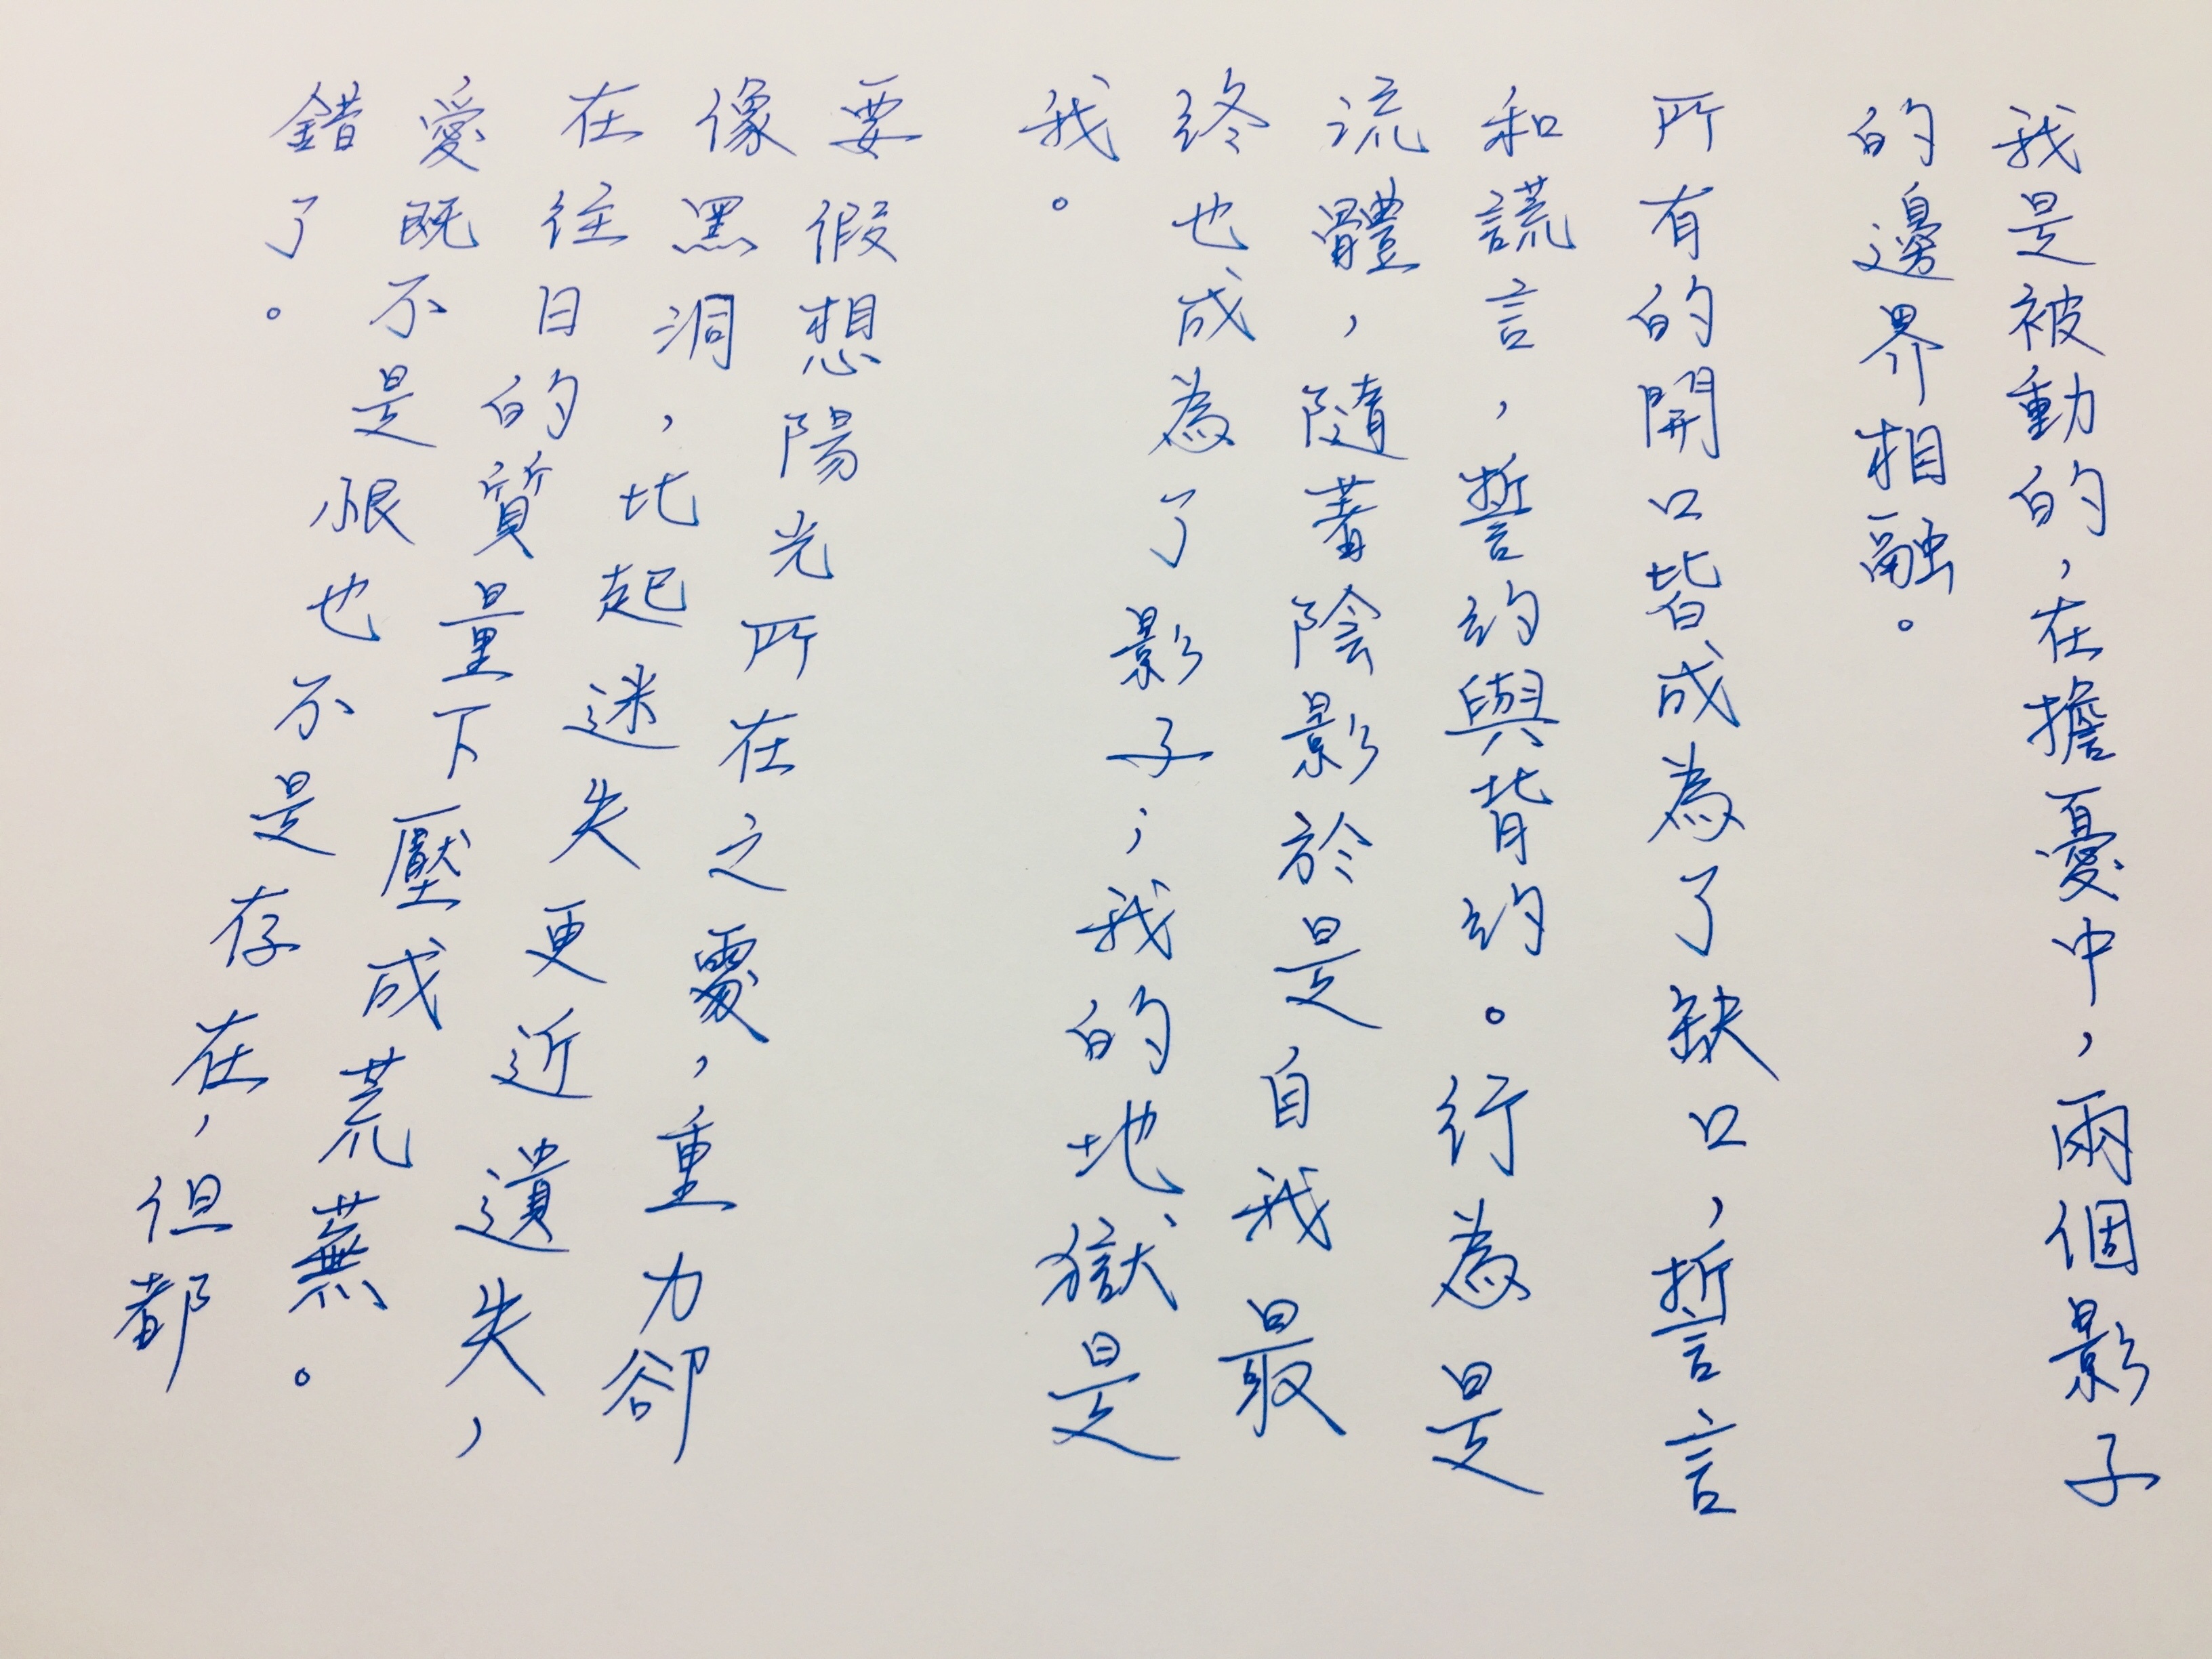 我是被動的，在擔憂中，兩個影子
的邊界相融。
所有的開口皆成為了缺口，誓言
和謊言，誓約與背約。行為是
流體，隨著陰影於是自我最
終也成為了影子；我的地獄是
我。
要假想陽光所在之處，重力卻
像黑洞，比起迷失更近遺失，
在往日的質量下壓成荒蕪。
愛既不是恨也不是存在，但都
錯了。